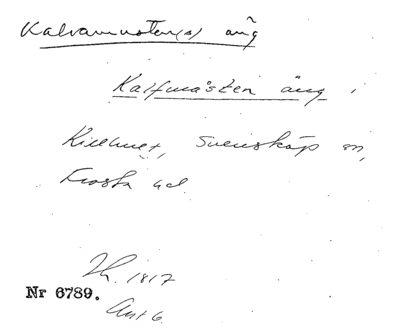 Kalvamosten(s) äng
Kalfmåsten äng
Killhult, Svensköp sn,
Frosta hd.
1817
Nr 6789.
Akt 6